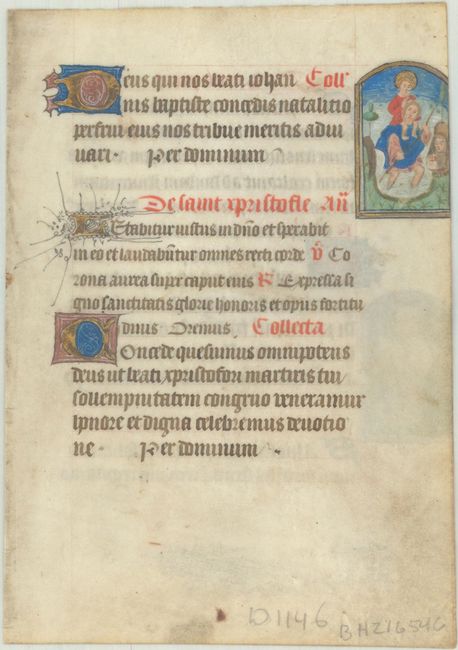 Deus qui nos beati iohan Coll'
nis baptiste concedis natalitio
perfrui eius nos tribue meritis adiu
uari · Per dominum
De saint xpristofle Añ
Letabitur iustus in dño et sperabit
in eo et laudabũtur omnes recti corde ℣ Co
rona aurea super caput eius ℟ Expressa si
gno sanctitatis glorie honoris et opus fortitu
dinis Oremus Collecta
Concede quesumus omnipotens
deus ut beati xpristofori martiris tui
sollempnitatem congruo veneramur
honore et digna celebremus deuotio
ne · Per dominum
D.1146